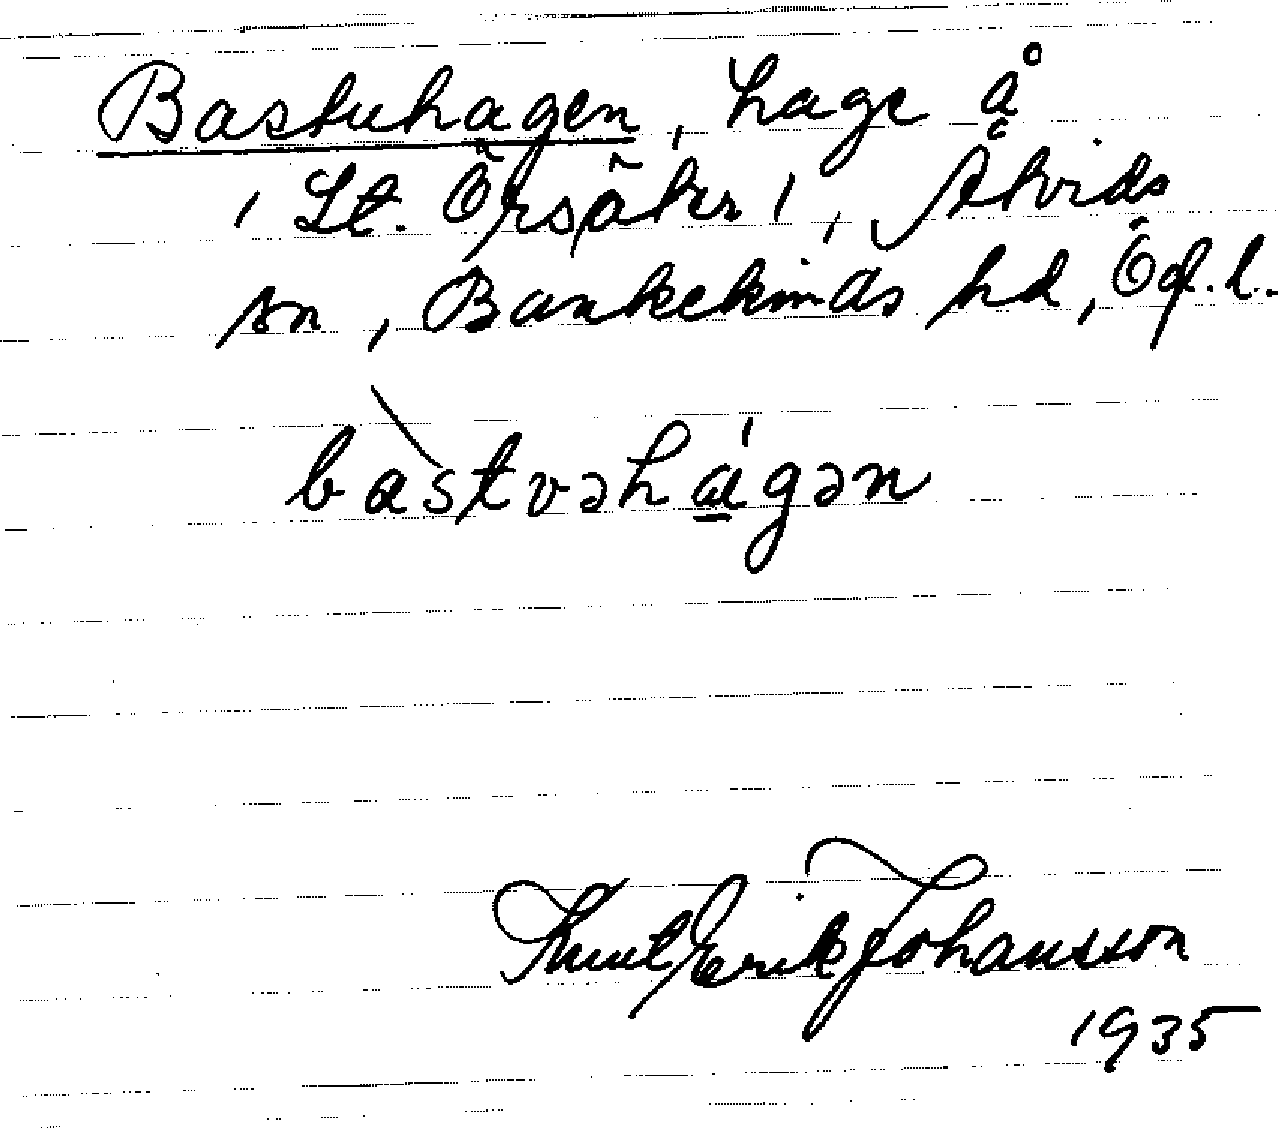 Bastuhagen, hage å
/ Lt. Örsäter /, Åtvids
sn, Bankekinds hd, Ög. l.
bàstvəhágən
Knut Erik Johansson
1935